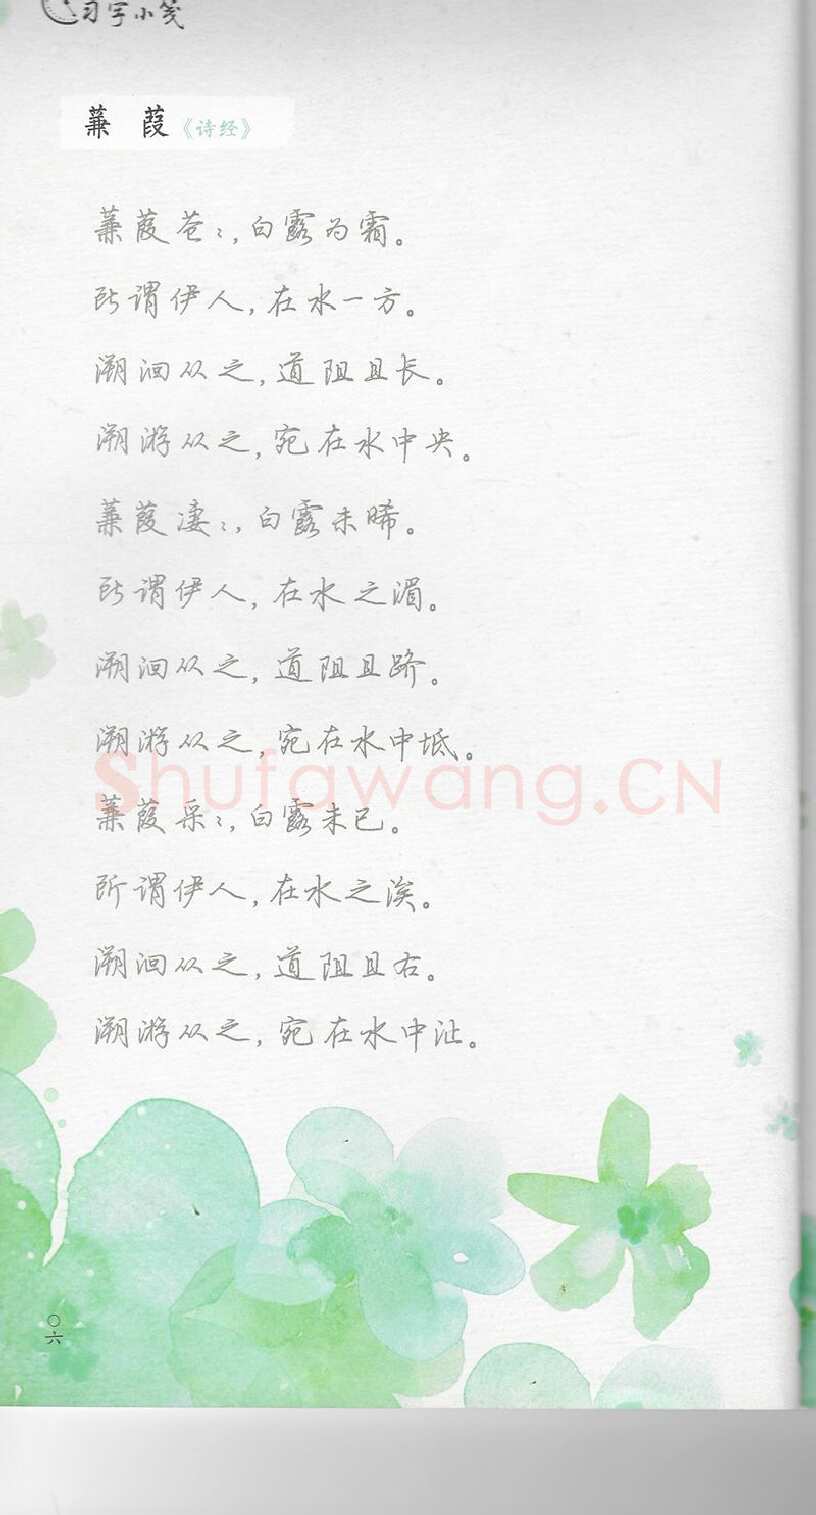 习字小笺
蒹葭《诗经》
蒹葭苍々,白露为霜。
所谓伊人,在水一方。
溯洄从之,道阻且长。
溯游从之,宛在水中央。
蒹葭凄々,白露未晞。
所谓伊人,在水之湄。
溯洄从之,道阻且跻。
溯游从之,宛在水中坻。
Shufawang.CN
蒹葭采々,白露未已。
所谓伊人,在水之涘。
溯洄从之,道阻且右。
溯游从之,宛在水中沚。
〇六